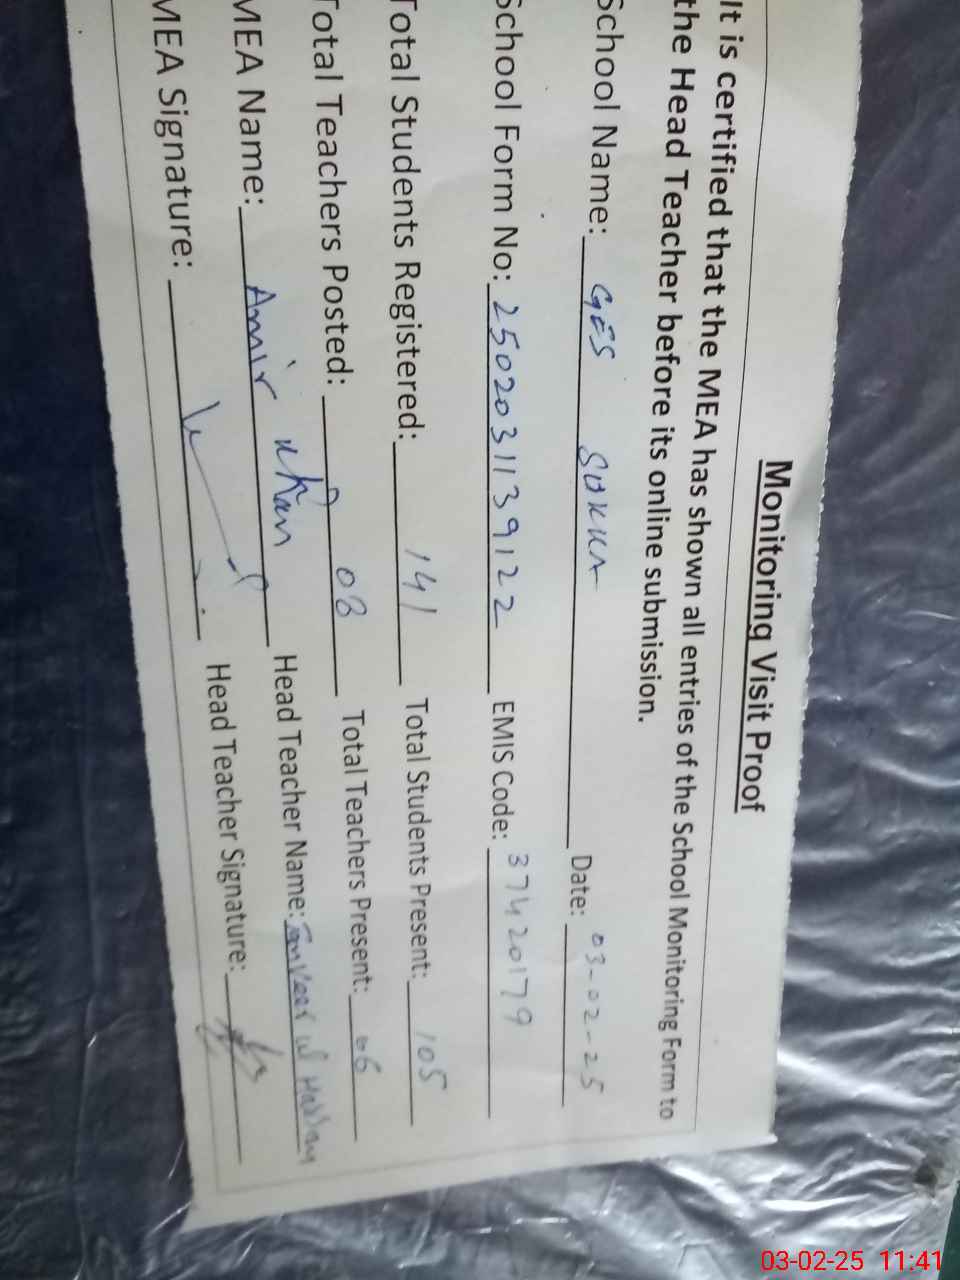 Monitoring Visit Proof
It is certified that the MEA has shown all entries of the School Monitoring Form to
the Head Teacher before its online submission.
School Name: GES SUKKA Date: 03-02-25
School Form No: 2502031139122 EMIS Code: 37420179
Total Students Registered: 141 Total Students Present: 105
Total Teachers Posted: 08 Total Teachers Present: 06
MEA Name: Amir Khan Head Teacher Name: Tanveer ul Hassan
MEA Signature: Head Teacher Signature:
03-02-25 11:41